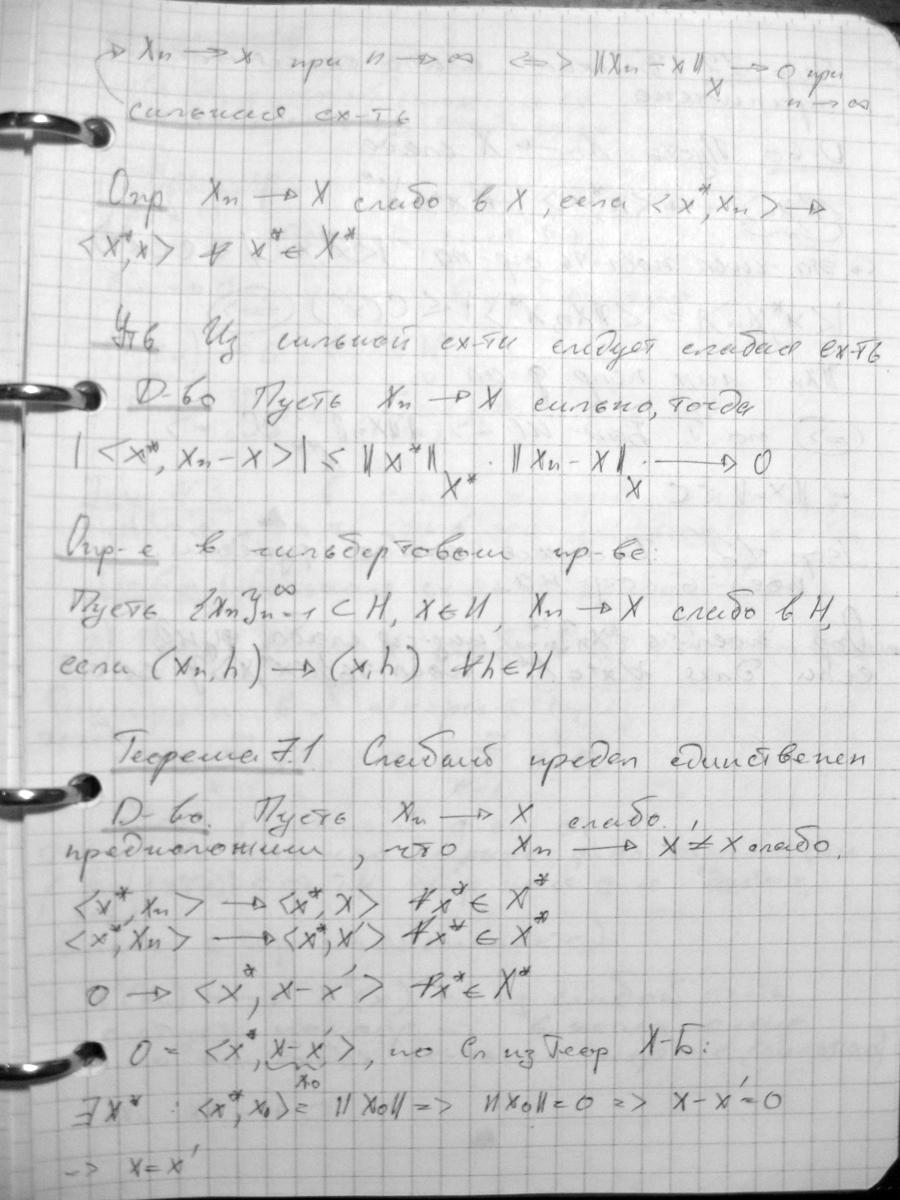 → Xn → x при n → ∞ <=> ||Xn - x||_X → 0 при n → ∞
сильная сх-ть
Опр Xn → X слабо в X, если <x*, xn> →
<x*, x> ∀ x* ∈ X*
Утв Из сильной сх-ти следует слабая сх-ть
Д-во Пусть Xn → X сильно, тогда
|<x*, xn - x>| ≤ ||x*||_X* · ||xn - x||_X → 0
Опр-е в гильбертовом пр-ве:
Пусть {xn}_{n=1}^∞ ⊂ H, x ∈ H, Xn → X слабо в H,
если (xn, h) → (x, h) ∀h ∈ H
Теорема 7.1 Слабый предел единственен
Д-во. Пусть Xn → X слабо.
предположим, что Xn → x' ≠ x слабо.
<x*, xn> → <x*, x> ∀x* ∈ X*
<x*, xn> → <x*, x'> ∀x* ∈ X*
0 → <x*, x - x'> ∀x* ∈ X*
0 = <x*, x - x'>, по Сл из Теор Х-Б:
x0
∃x* : <x*, x0> = ||x0|| => ||x0|| = 0 => x - x' = 0
-> x = x'